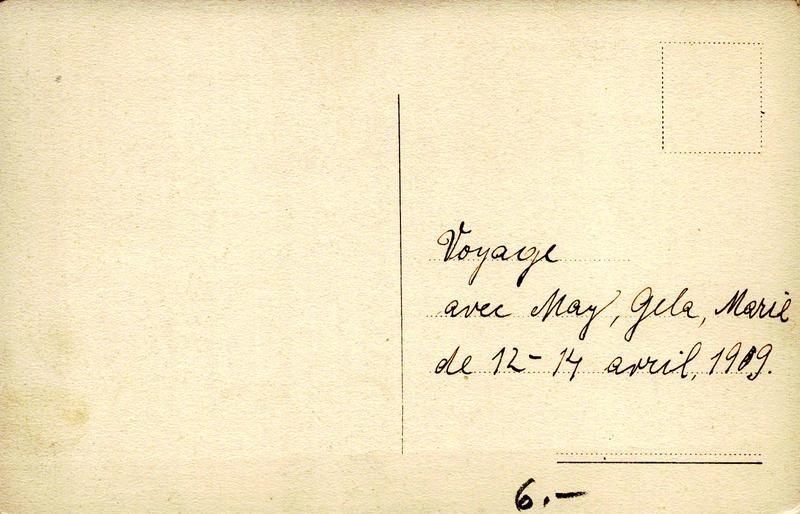 Voyage
avec May, Gela, Marie
de 12-14 avril, 1909.
6.-